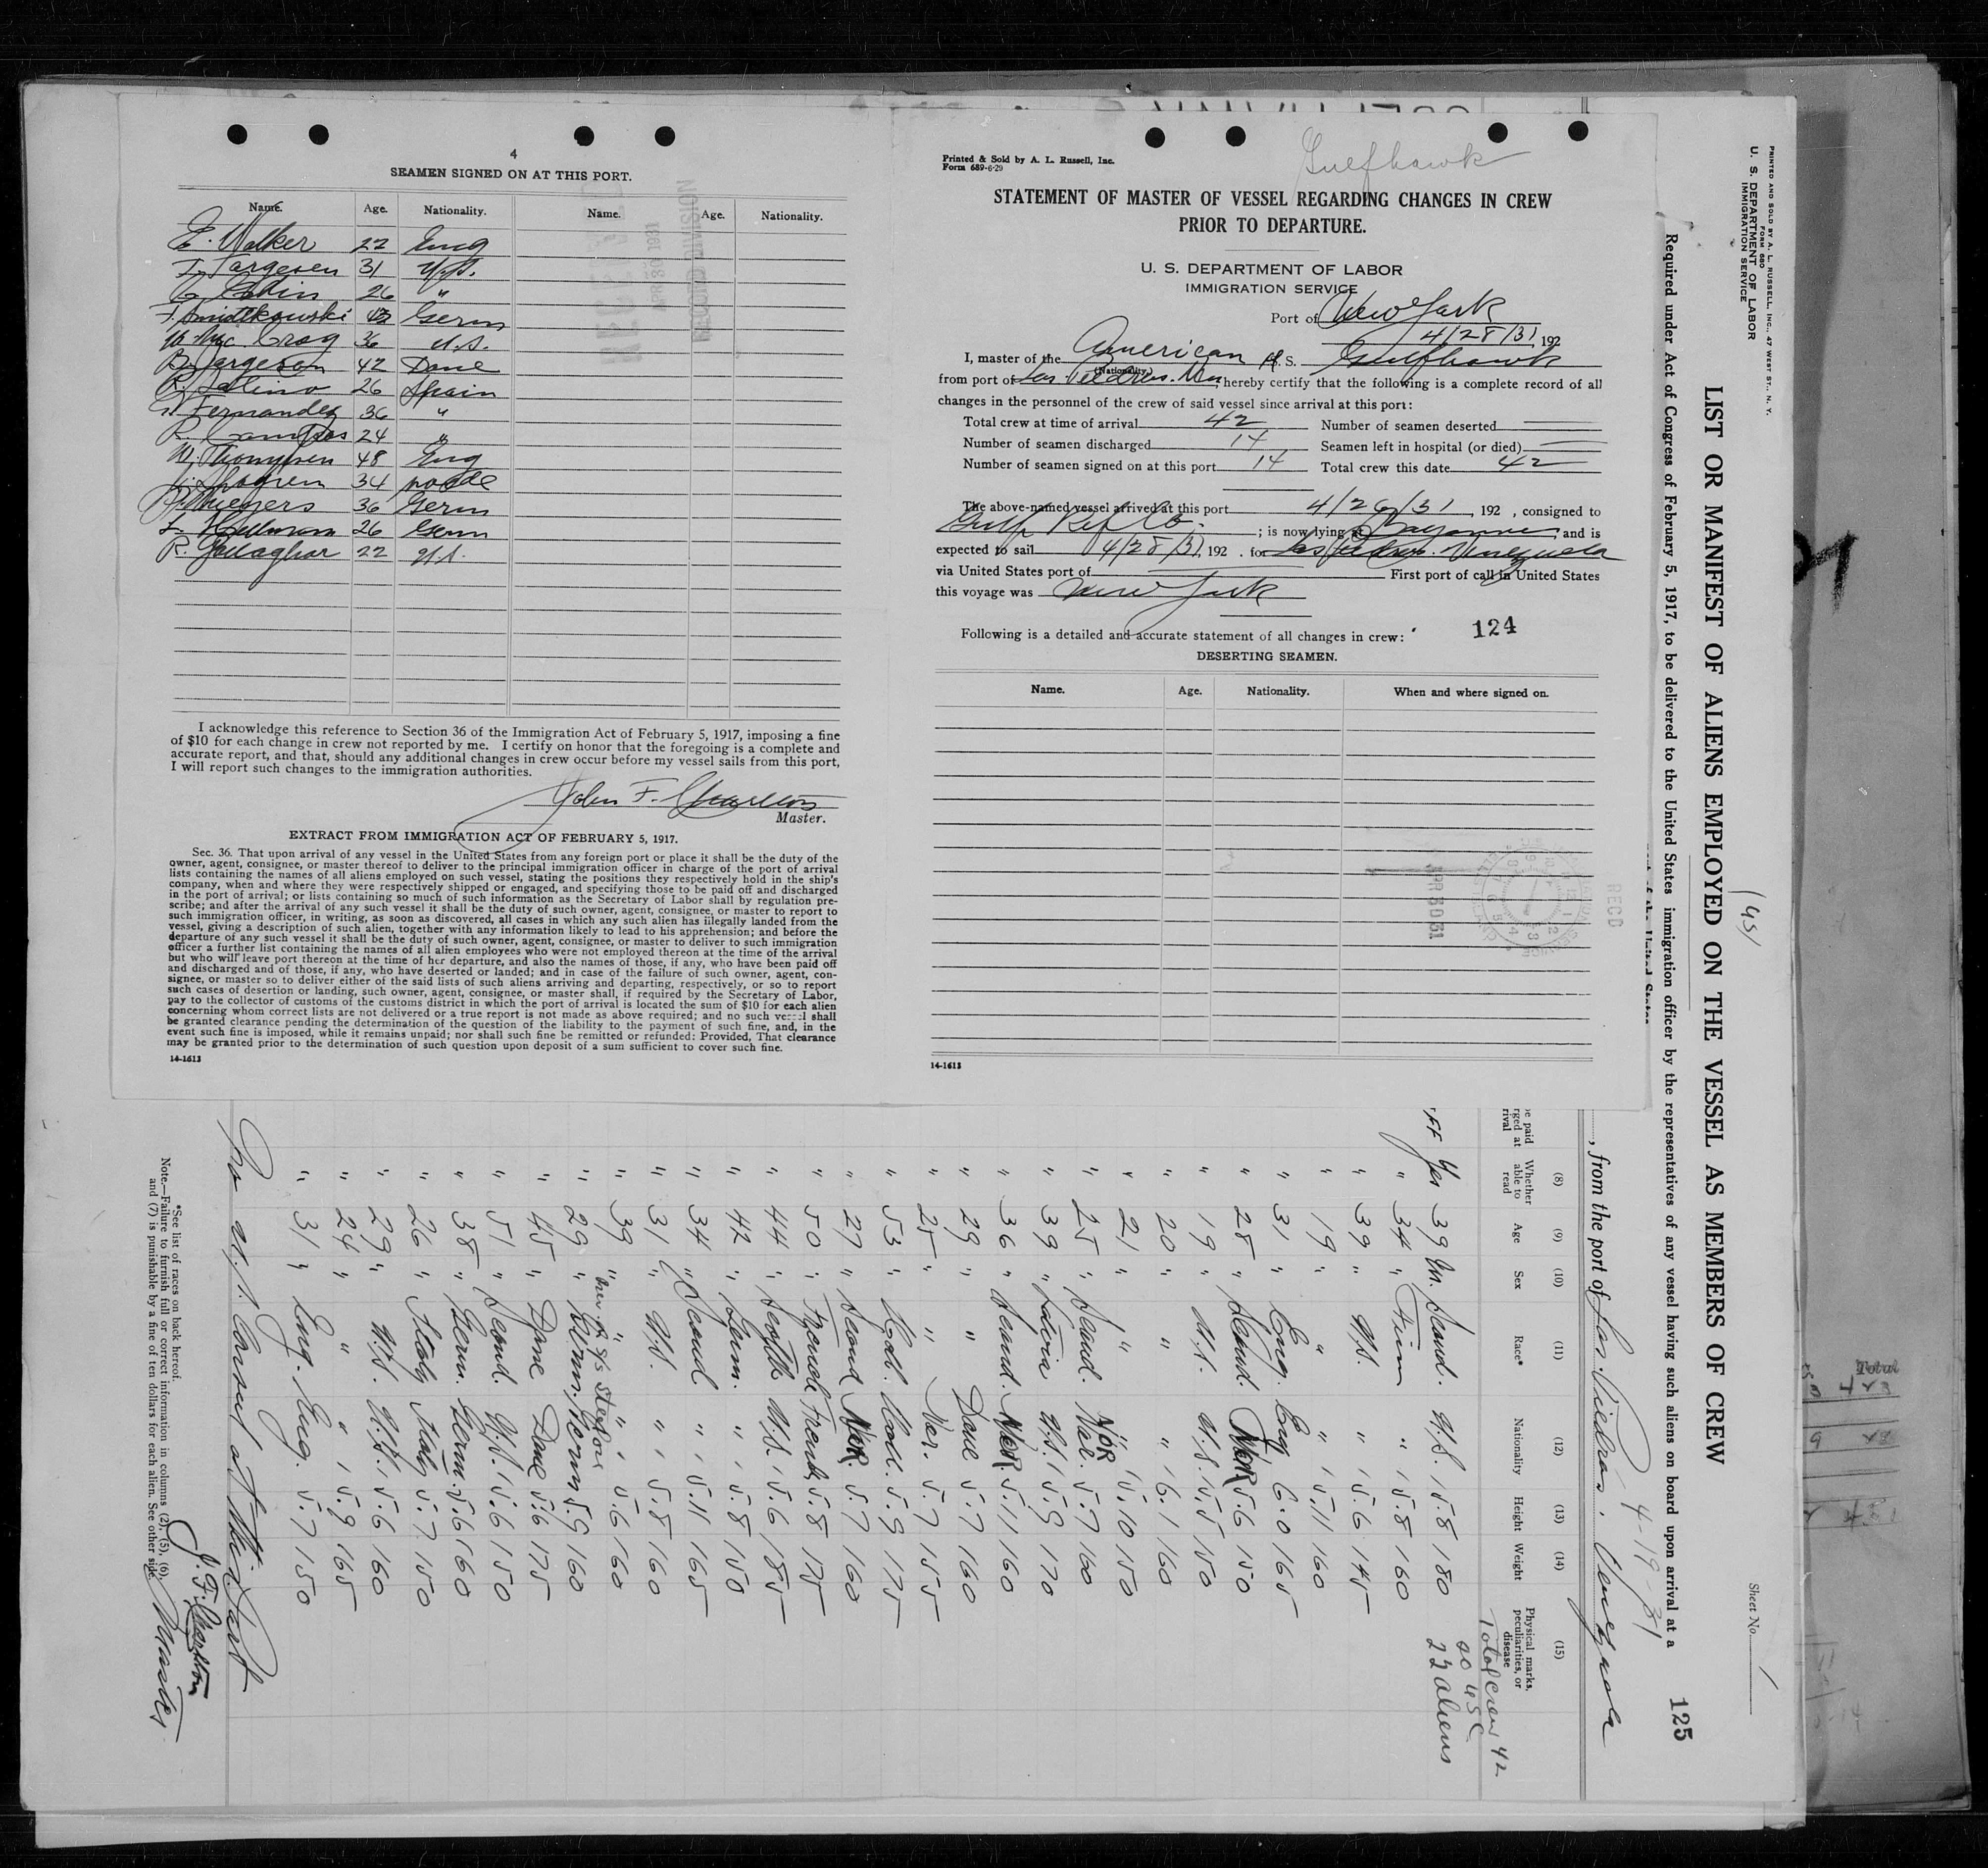 4
SEAMEN SIGNED ON AT THIS PORT.
Name. Age. Nationality. Name. Age. Nationality.
E. Walker 22 Eng
31 U.S.
26 "
43 Germ
36 U.S.
B. Jargeson 42 Dane
26 Spain
Fernandez 36 "
R. Campos 24 "
W. Thompsen 48 Eng
34
36 Germ
L. Hellman 26 Germ
R. Gallaghar 22 U.S.
I acknowledge this reference to Section 36 of the Immigration Act of February 5, 1917, imposing a fine
of $10 for each change in crew not reported by me. I certify on honor that the foregoing is a complete and
accurate report, and that, should any additional changes in crew occur before my vessel sails from this port,
I will report such changes to the immigration authorities.
John F. Charlton
Master.
EXTRACT FROM IMMIGRATION ACT OF FEBRUARY 5, 1917.
Sec. 36. That upon arrival of any vessel in the United States from any foreign port or place it shall be the duty of the
owner, agent, consignee, or master thereof to deliver to the principal immigration officer in charge of the port of arrival
lists containing the names of all aliens employed on such vessel, stating the positions they respectively hold in the ship's
company, when and where they were respectively shipped or engaged, and specifying those to be paid off and discharged
in the port of arrival; or lists containing so much of such information as the Secretary of Labor shall by regulation pre-
scribe; and after the arrival of any such vessel it shall be the duty of such owner, agent, consignee, or master to report to
such immigration officer, in writing, as soon as discovered, all cases in which any such alien has illegally landed from the
vessel, giving a description of such alien, together with any information likely to lead to his apprehension; and before the
departure of any such vessel it shall be the duty of such owner, agent, consignee, or master to deliver to such immigration
officer a further list containing the names of all alien employees who were not employed thereon at the time of the arrival
but who will leave port thereon at the time of her departure, and also the names of those, if any, who have been paid off
and discharged and of those, if any, who have deserted or landed; and in case of the failure of such owner, agent, con-
signee, or master so to deliver either of the said lists of such aliens arriving and departing, respectively, or so to report
such cases of desertion or landing, such owner, agent, consignee, or master shall, if required by the Secretary of Labor,
pay to the collector of customs of the customs district in which the port of arrival is located the sum of $10 for each alien
concerning whom correct lists are not delivered or a true report is not made as above required; and no such vessel shall
be granted clearance pending the determination of the question of the liability to the payment of such fine, and, in the
event such fine is imposed, while it remains unpaid; nor shall such fine be remitted or refunded: Provided, That clearance
may be granted prior to the determination of such question upon deposit of a sum sufficient to cover such fine.
14-1613
APR 30 1931
RECORD DIVISION
Printed & Sold by A. L. Russell, Inc.
Form 689-6-29
Gulfhawk
STATEMENT OF MASTER OF VESSEL REGARDING CHANGES IN CREW
PRIOR TO DEPARTURE.
U. S. DEPARTMENT OF LABOR
IMMIGRATION SERVICE
Port of New York
4/28/31, 192
I, master of the American S. S. Gulfhawk
(Nationality.)
from port of Las Piedras. Ven, hereby certify that the following is a complete record of all
changes in the personnel of the crew of said vessel since arrival at this port:
Total crew at time of arrival 42 Number of seamen deserted
Number of seamen discharged 14 Seamen left in hospital (or died)
Number of seamen signed on at this port 14 Total crew this date 42
The above-named vessel arrived at this port 4/26/31, 192 , consigned to
Gulf Ref Co. ; is now lying at Bayonne, and is
expected to sail 4/28/31, 192 . for Las Piedras. Venezuela
via United States port of First port of call in United States
this voyage was New York
Following is a detailed and accurate statement of all changes in crew:
124
DESERTING SEAMEN.
Name. Age. Nationality. When and where signed on.
RECD
APR 30 31
14-1613
PRINTED AND SOLD BY A. L. RUSSELL, INC., 47 WEST ST., N. Y.
FORM 680
U. S. DEPARTMENT OF LABOR
IMMIGRATION SERVICE
Sheet No. 1
LIST OR MANIFEST OF ALIENS EMPLOYED ON THE VESSEL AS MEMBERS OF CREW
Required under Act of Congress of February 5, 1917, to be delivered to the United States immigration officer by the representatives of any vessel having such aliens on board upon arrival at a
125
4-19-31
, from the port of Las. Piedras. Venezuela
(8) (9) (10) (11) (12) (13) (14) (15)
Whether able to read Age Sex Race* Nationality Height Weight Physical marks, peculiarities, or disease
Total crew 42
20 USC
22 aliens
Yes 39 M. Scand. U.S. 5.8 180
" 34 " Finn " 5.8 160
" 39 " U.S. " 5.6 145
" 19 " " " 5.11 160
" 31 " Eng. Eng 6.0 165
" 25 " Scand. NOR 5.6 150
" 19 U.S. U.S. 5.5 150
" 20 " " 6.1 160
" 21 " " NOR 5.10 150
" 25 " Scand. Nor. 5.7 160
" 39 " Latvia U.S. 5.9 170
" 36 " Scand. NOR. 5.11 160
" 29 " " Dane 5.7 160
" 25 " " Nor. 5.7 155
" 53 Holl. Holl. 5.9 175
" 27 " Scand NOR. 5.7 160
" 50 " French French 5.8 175
" 44 " U.S. 5.6 185
" 42 " Germ. " 5.8 150
" 34 " Scand " 5.11 165
" 31 " U.S. " 5.8 160
" 39 " " " 5.6 160
" 29 " Germ. Germ 5.9 160
" 45 " Dane Dane 5.6 175
" 51 " Scand. U.S. 5.6 150
" 38 " Germ. Germ. 5.6 160
" 26 " Italy Italy 5.7 150
" 29 " U.S. U.S. 5.6 160
" 24 " " " 5.9 165
" 31 " Eng. Eng. 5.7 150
No U.S. Consul at this Port
J. F. Charlton
Master
*See list of races on back hereof.
Note.—Failure to furnish full or correct information in columns (2), (5), (6),
and (7) is punishable by a fine of ten dollars for each alien. See other side.